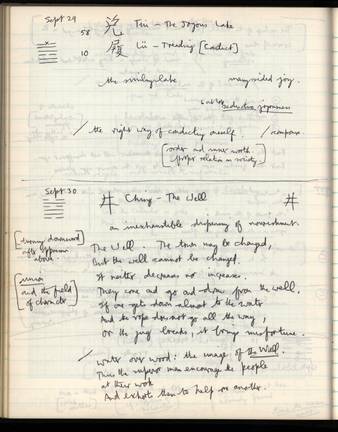 Sept 29
58 兌 Tui - The Joyous Lake
10 履 Lü - Treading [Conduct]
the smiling lake many sided joy.
seductive joyousness
/ the right way of conducting oneself. / composure
[order and inner worth.
proper relation in society]
Sept 30
井 Ching - The Well 井
an inexhaustible dispensing of nourishment.
[turning downward
after oppression
above]
The Well. The town may be changed,
But the well cannot be changed.
It neither decreases nor increases.
They come and go and draw from the well.
If one gets down almost to the water
And the rope does not go all the way,
Or the jug breaks, it brings misfortune.
[union
and the field
of character]
/ Water over wood: the image of The Well.
Thus the superior man encourages the people
at their work
And exhorts them to help one another.